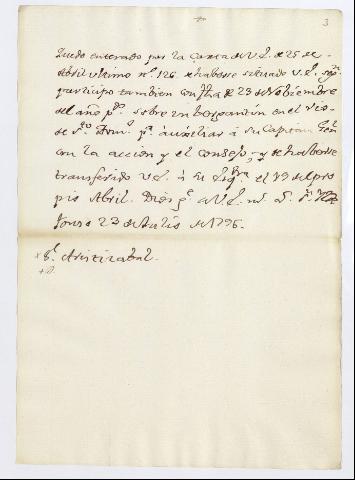 3
Quedo enterado por la Carta de V.E. de 25 de
Abril ultimo nº. 126. de haberse situado V.E. sgn.
participo tambien con fha de 23 de Noviembre
del año pº. sobre un bergantin en el
de Sto. Domº. pª. auxiliar á su Capitan Genl
con la accion y el consejo, y de haberse
transferido V.E. á su el 19 del pro
pio Abril. Dios gº. a V.E. ms. as. Sn. Ylde
fonso 23 de Julio de 1796.
Sr. Aristizabal.